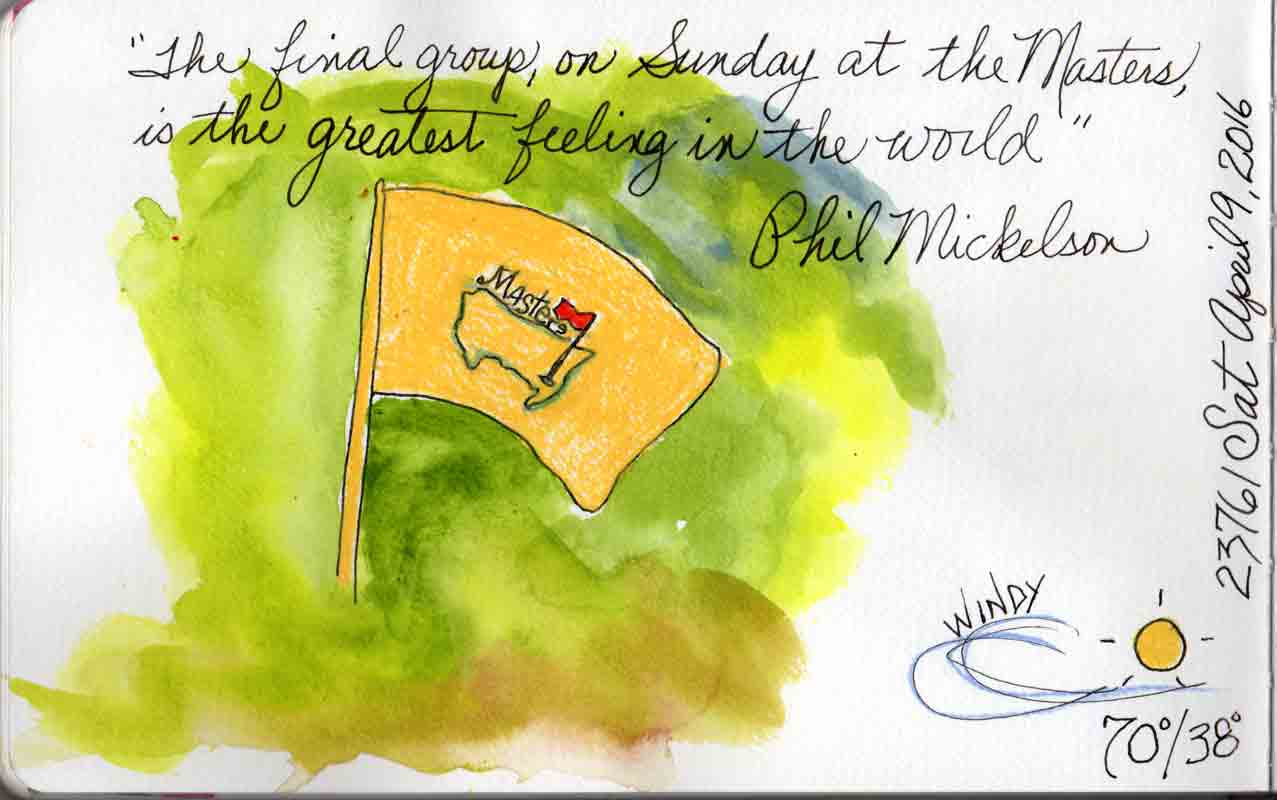 "The final group, on Sunday at the Masters,
is the greatest feeling in the world"
Phil Mickelson
Masters
23761 Sat April 9, 2016
WINDY
70°/38°